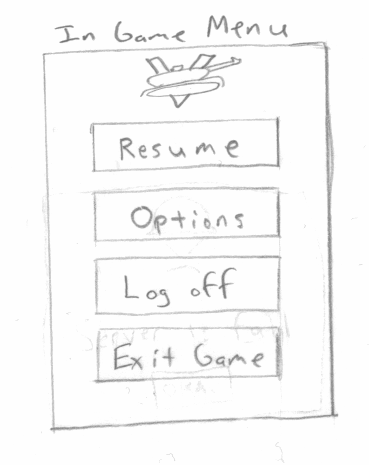 In Game Menu
Resume
Options
Log off
Exit Game